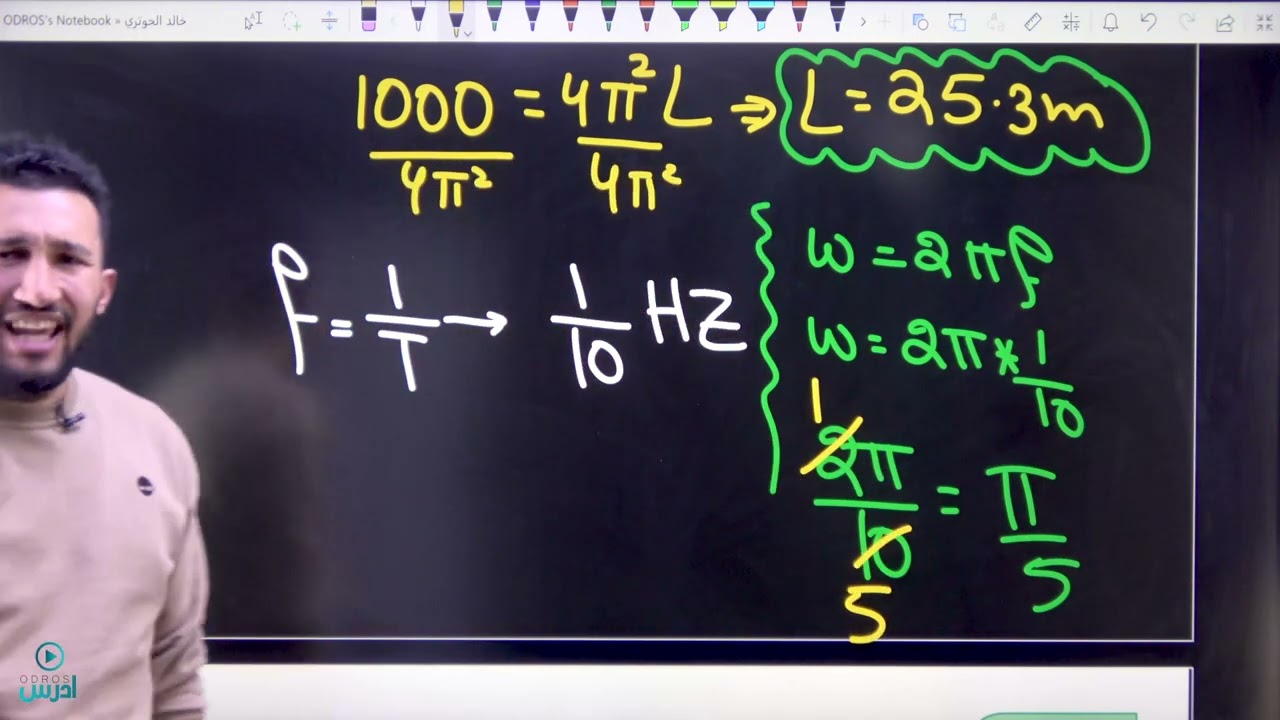 ODROS's Notebook » خالد الحوتري
1000/4π² = 4π²L/4π² ⇒ L = 25.3m
f = 1/T → 1/10 HZ
w = 2πf
w = 2π * 1/10
1
2π/10 = π/5
5
ODROS
ادرس